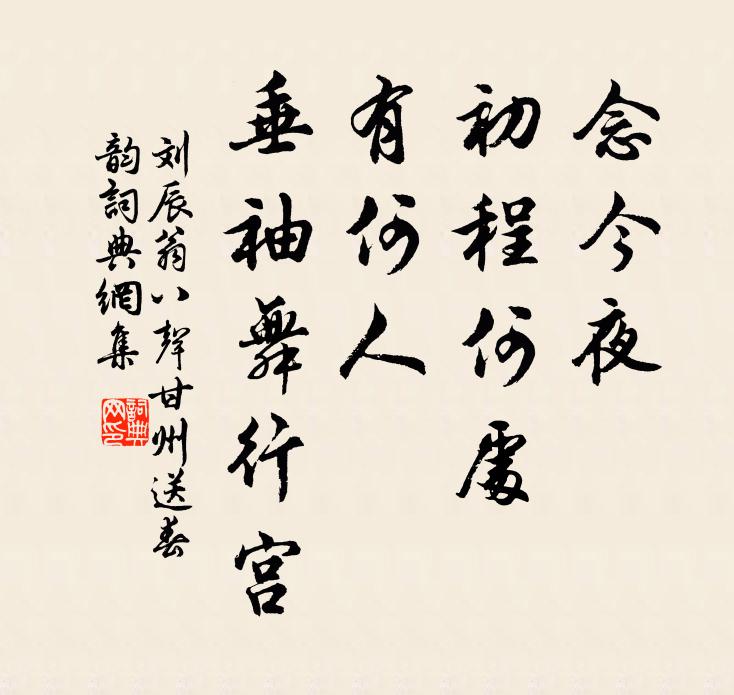 念今夜
初程何處
有何人
垂袖舞行宫
刘辰翁八聲甘州送春
韵詞典網集
詞典
网印